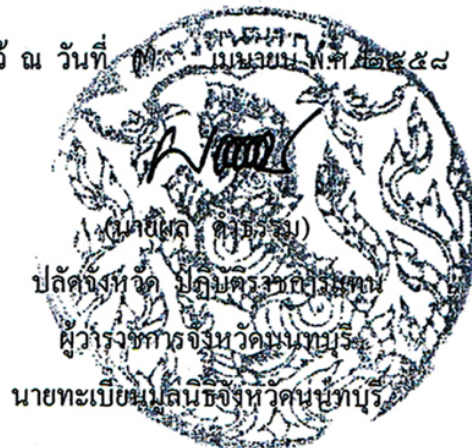 ณ วันที่ เมษายน พ.ศ. ๒๕๕๘
(นายผล ดำธรรม)
ปลัดจังหวัด ปฏิบัติราชการแทน
ผู้ว่าราชการจังหวัดนนทบุรี
นายทะเบียนมูลนิธิจังหวัดนนทบุรี